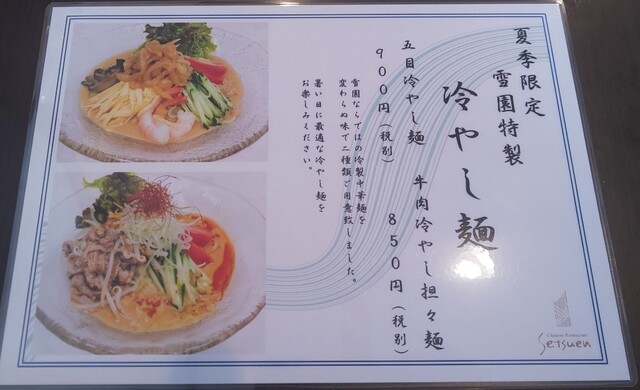 夏季限定
雪園特製
冷やし麺
五目冷やし麺
900円(税別)
牛肉冷やし担々麺
850円(税別)
雪園ならではの冷製中華麺を
変わらぬ味で二種類ご用意致しました。
暑い日に最適な冷やし麺を
お楽しみください。
Chinese Restaurant
Setsuen